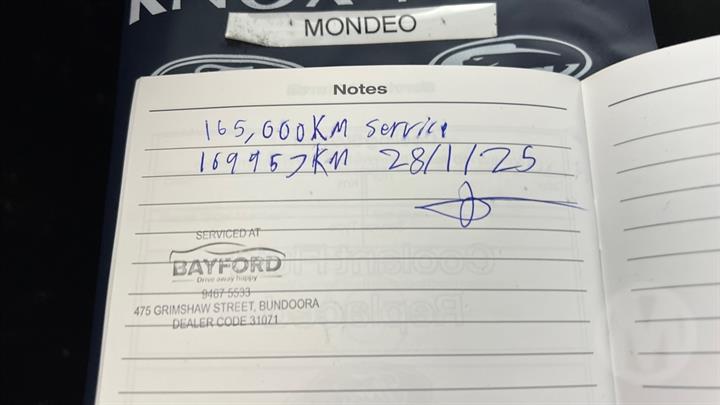 KNOX
MONDEO
Notes
165,000KM Service
169957KM 28/1/25
SERVICED AT
BAYFORD
Drive away happy
9467 5533
475 GRIMSHAW STREET, BUNDOORA
DEALER CODE 31071